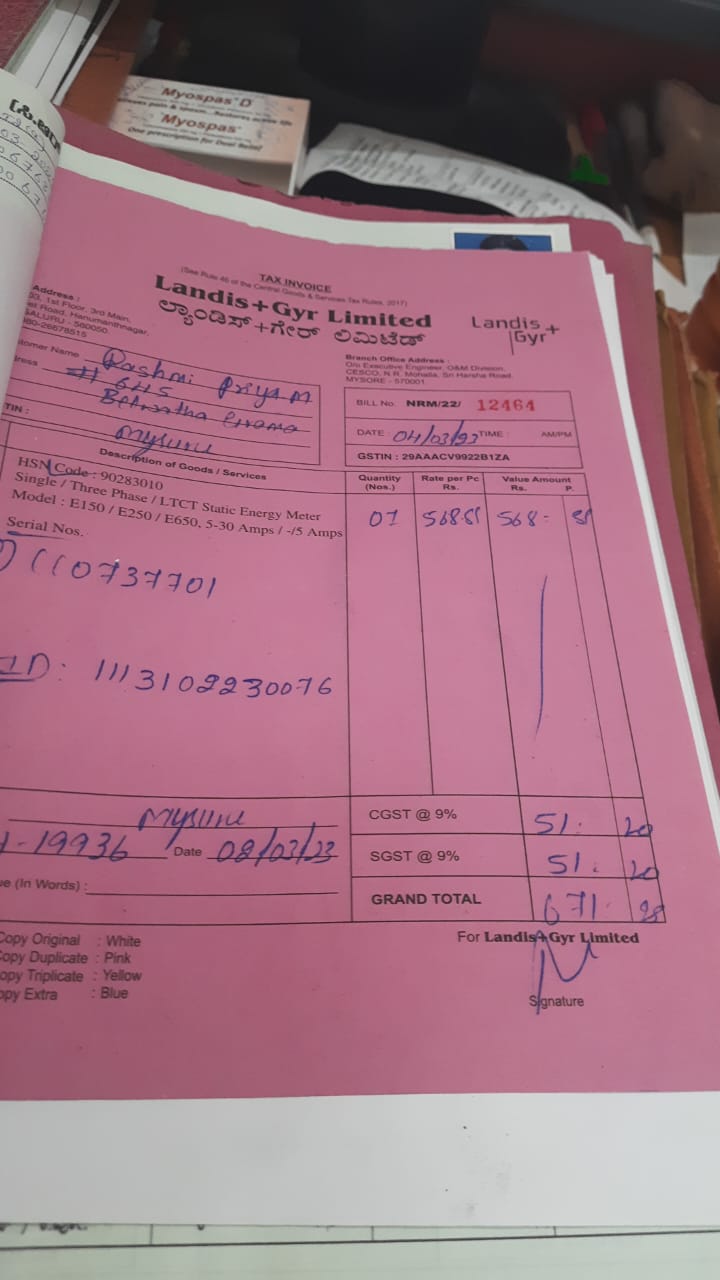 Myospas® D
Myospas®
One prescription for Dual Relief
TAX INVOICE
(See Rule 46 of the Central Goods & Services Tax Rules, 2017)
Landis+Gyr Limited
ಲ್ಯಾಂಡಿಸ್+ಗೇರ್ ಲಿಮಿಟೆಡ್
Landis+
Gyr
Address :
1st Floor, 3rd Main,
Road, Hanumanthnagar,
- 560050.
080-26678515
Branch Office Address :
O/o Executive Engineer, O&M Division,
CESCO, N.R. Mohalla, Sri Harsha Road,
MYSORE - 570001
Name Rashmi Priya M
# 645
Mysuru
TIN :
BILL No. NRM/22/ 12464
DATE : 04/03/23 TIME : AM/PM
GSTIN : 29AAACV9922B1ZA
Description of Goods / Services
Quantity (Nos.)
Rate per Pc Rs.
Value Amount Rs. P.
HSN Code : 90283010
Single / Three Phase / LTCT Static Energy Meter
Model : E150 / E250 / E650, 5-30 Amps / -/5 Amps
01 568.81 568= 81
Serial Nos.
110737701
ID: 1113102230076
Mysuru
-19936 Date 08/03/23
(In Words) :
CGST @ 9% 51. 20
SGST @ 9% 51. 20
GRAND TOTAL 671. 28
Copy Original : White
Copy Duplicate : Pink
Copy Triplicate : Yellow
Copy Extra : Blue
For Landis+Gyr Limited
Signature